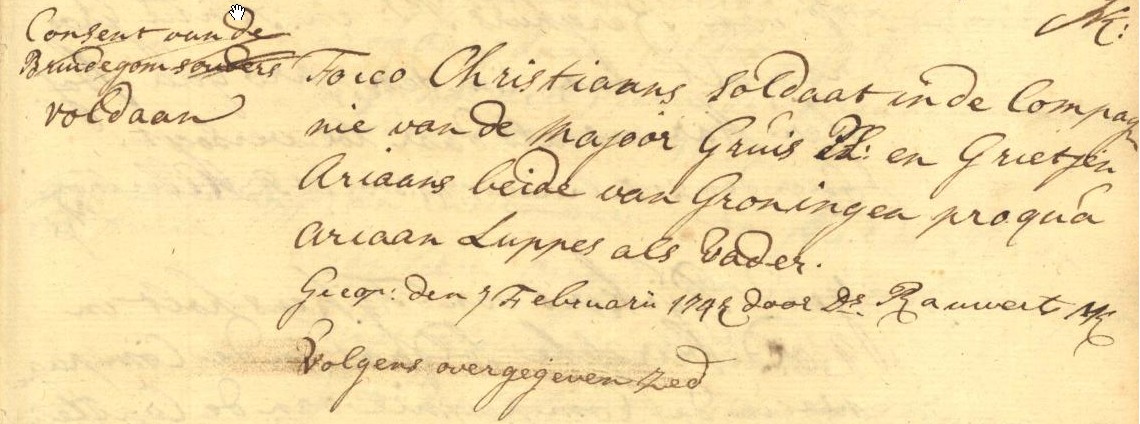 M:
Consent van de
Bruidegoms ouders
voldaan
Focco Christiaans soldaat in de Compag
nie van de Majoor Gruis Pl: en Grietjen
Ariaans beide van Groningen proqua
Ariaan Luppes als Vader.
Gecop: den 7 Februarii 174 door Ds. Rauwerts MK
Volgens overgegeven Zed